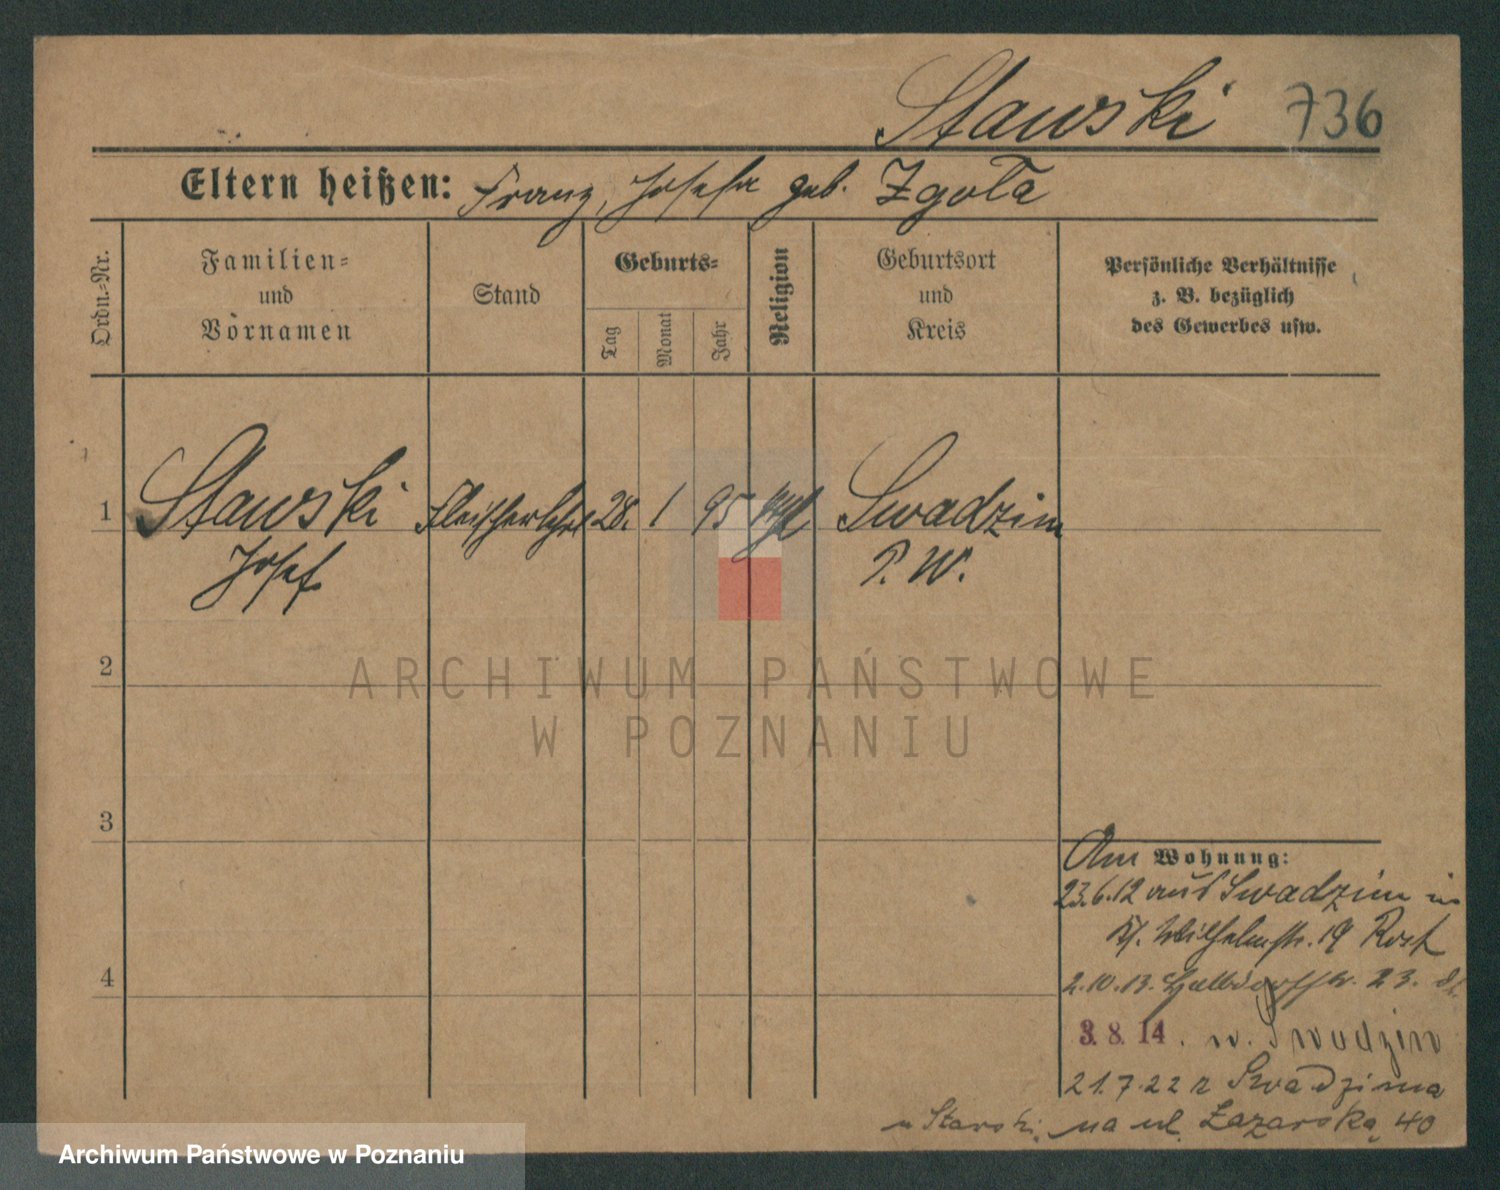 Stawski 736
Eltern heißen: Franz, Josefa geb. Zgoła
Ordn.-Nr.
Familien-
und
Vornamen
Stand
Geburts-
Tag
Monat
Jahr
Religion
Geburtsort
und
Kreis
Persönliche Verhältnisse
z. B. bezüglich
des Gewerbes usw.
1 Stawski Fleischerlehrl 28. 1 95 kath Swadzim
Josef P. W.
2
ARCHIWUM PAŃSTWOWE
W POZNANIU
3
Am Wohnung:
23.6.12 aus Swadzim in
Wilhelmstr. 19 Rost
4
2.10.13. Halbdorfstr. 23.
3. 8. 14. n. Swadzim
21.7.22 z Swadzima
u Stawski, na ul. Łazarską 40
Archiwum Państwowe w Poznaniu